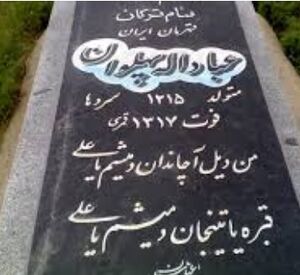 بنام ترکان
قهرمان ایران
عباداله پهلوان
متولد ۱۲۱۵ سردها
فوت ۱۳۱۷ قمری
من دیل آچاندان دمیشم یا علی
قبره یاتینجان دمیشم یا علی